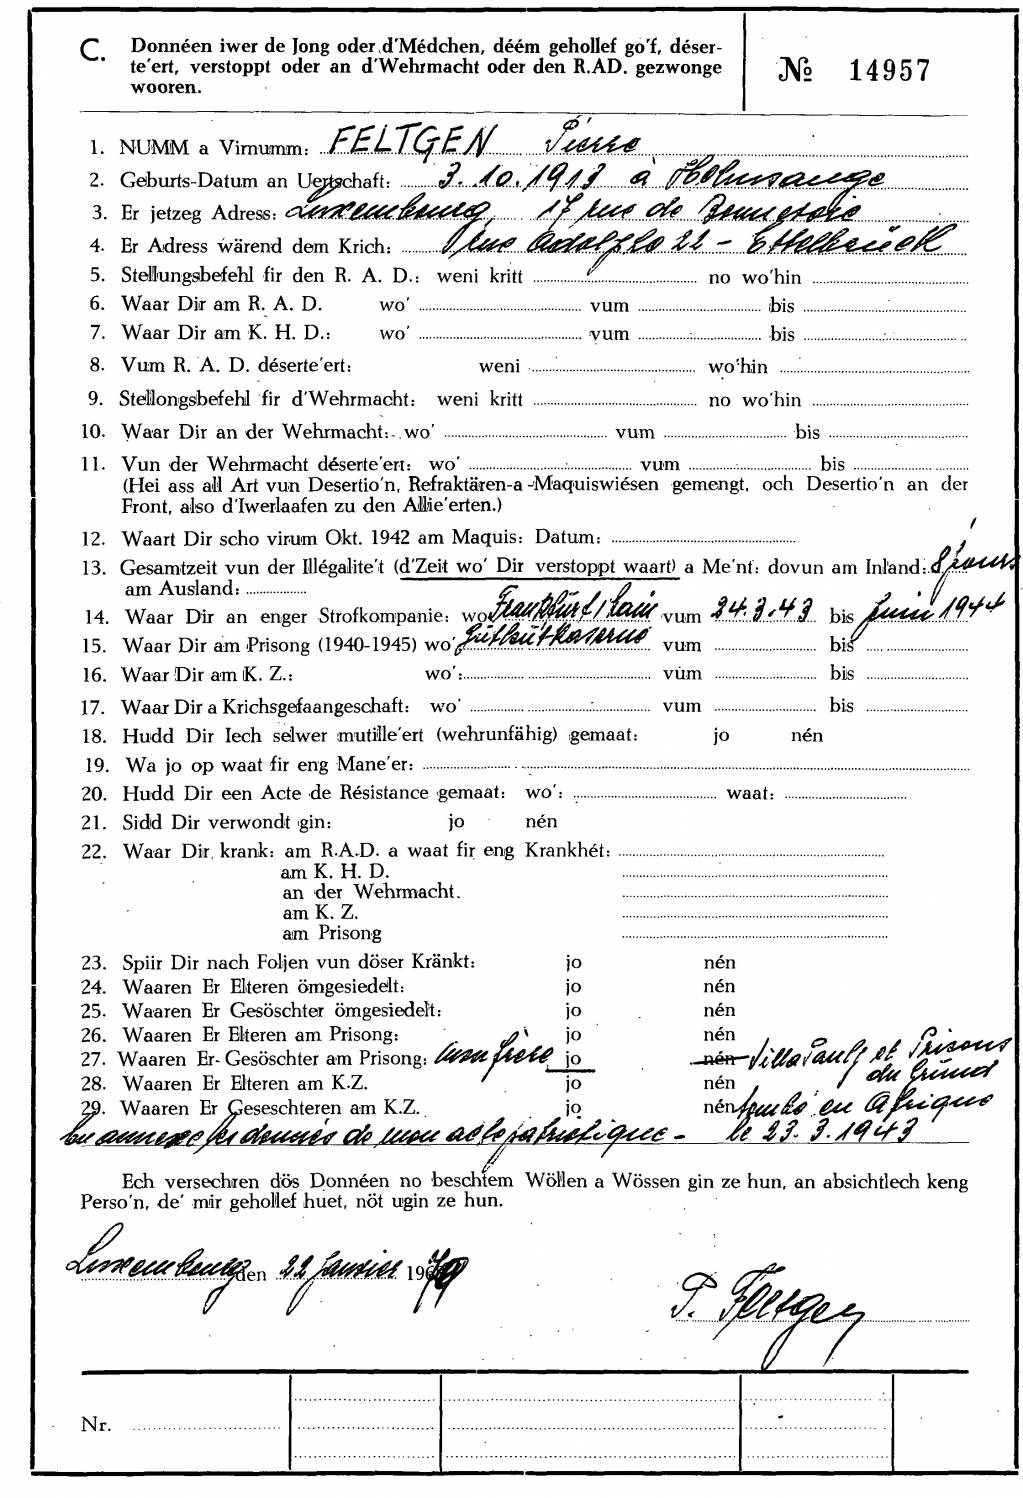 C. Donnéen iwer de Jong oder d'Médchen, déém gehollef go'f, déser-
te'ert, verstoppt oder an d'Wehrmacht oder den R.AD. gezwonge
wooren.
№ 14957
1. NUMM a Virnumm: FELTGEN Pierre
2. Geburts-Datum an Uertschaft: 3.10.1913 à Helmsange
3. Er jetzeg Adress: Luxembourg, 17 rue de Bonnevoie
4. Er Adress wärend dem Krich: rue Adolphe 22 - Ettelbrück
5. Stellungsbefehl fir den R. A. D.: weni kritt no wo'hin
6. Waar Dir am R. A. D. wo' vum bis
7. Waar Dir am K. H. D.: wo' vum bis
8. Vum R. A. D. déserte'ert: weni wo'hin
9. Stellongsbefehl fir d'Wehrmacht: weni kritt no wo'hin
10. Waar Dir an der Wehrmacht: wo' vum bis
11. Vun der Wehrmacht déserte'ert: wo' vum bis
(Hei ass all Art vun Desertio'n, Refraktären-a-Maquiswiésen gemengt, och Desertio'n an der
Front, also d'Iwerlaafen zu den Allie'erten.)
12. Waart Dir scho virum Okt. 1942 am Maquis: Datum:
13. Gesamtzeit vun der Illégalite't (d'Zeit wo' Dir verstoppt waart) a Me'nt: dovun am Inland: 8 jours
am Ausland:
14. Waar Dir an enger Strofkompanie: wo' Frankfurt/Main vum 24.3.43 bis Juin 1944
15. Waar Dir am Prison (1940-1945) wo' vum bis
16. Waar Dir am K. Z.: wo': vum bis
17. Waar Dir a Krichsgefaangeschaft: wo' vum bis
18. Hudd Dir Iech selwer mutille'ert (wehrunfähig) gemaat: jo nén
19. Wa jo op waat fir eng Mane'er:
20. Hudd Dir een Acte de Résistance gemaat: wo': waat:
21. Sidd Dir verwondt gin: jo nén
22. Waar Dir krank: am R.A.D. a waat fir eng Krankhét:
am K. H. D.
an der Wehrmacht.
am K. Z.
am Prisong
23. Spiir Dir nach Foljen vun döser Kränkt: jo nén
24. Waaren Er Elteren ömgesiedelt: jo nén
25. Waaren Er Gesöschter ömgesiedelt: jo nén
26. Waaren Er Elteren am Prisong: jo nén
27. Waaren Er Gesöschter am Prisong: mon frère jo nén Villa Pauly et Prisons
du Grund
28. Waaren Er Elteren am K.Z. jo nén
29. Waaren Er Geseschteren am K.Z. jo nén tombé en Afrique
En annexe les donnés de mon acte patriotique - le 23.3.1943
Ech versechren dös Donnéen no beschtem Wöllen a Wössen gin ze hun, an absichtlech keng
Perso'n, de' mir gehollef huet, nöt ugin ze hun.
Luxembourg den 22 Janvier 1970
P. Feltgen
Nr.